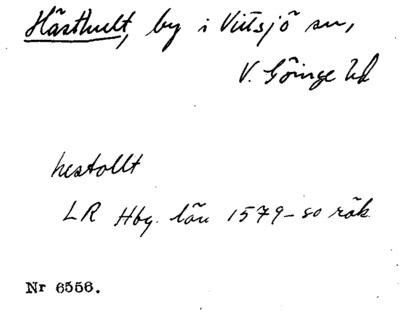 Hästhult, by i Vittsjö sn,
V. Göinge hd
hestollt
LR Hbg. län 1579-80 räk
Nr 6556.